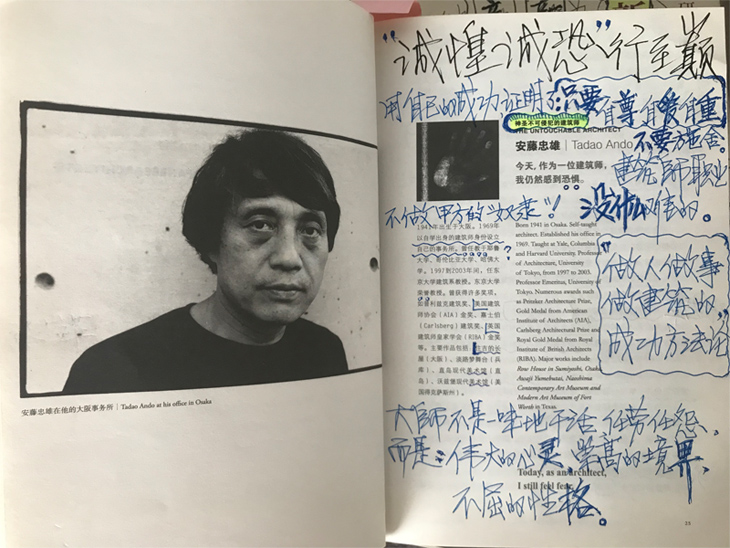 安藤忠雄在他的大阪事务所 | Tadao Ando at his office in Osaka
"诚惶诚恐"行至巅
用自己的成功证明了:只要有尊有爱有重
神圣不可侵犯的建筑师
THE UNTOUCHABLE ARCHITECT
不要方施舍。
安藤忠雄 | Tadao Ando
建筑师职业
今天,作为一位建筑师,
我仍然感到恐惧。
没什么
不做"甲方的"奴隶"!
1941年出生于大阪。1969年
以自学出身的建筑师身份设立
自己的事务所。曾任教于耶鲁
大学、哥伦比亚大学、哈佛大
学。1997到2003年间,任东
京大学建筑系教授。东京大学
荣誉教授。曾获得许多奖项,
如普利兹克建筑奖、美国建筑
师协会(AIA)金奖、嘉士伯
(Carlsberg)建筑奖、英国
建筑师皇家学会(RIBA)金奖
等。主要作品包括:住吉的长
屋(大阪)、淡路梦舞台(兵
库)、直岛现代美术馆(直
岛)、沃兹堡现代美术馆(美
国得克萨斯州)。
Born 1941 in Osaka. Self-taught
architect. Established his office in
1969. Taught at Yale, Columbia
and Harvard University. Professor
of Architecture, University
of Tokyo, from 1997 to 2003.
Professor Emeritus, University of
Tokyo. Numerous awards such
as Pritzker Architecture Prize,
Gold Medal from American
Institute of Architects (AIA),
Carlsberg Architectural Prize and
Royal Gold Medal from Royal
Institute of British Architects
(RIBA). Major works include
Row House in Sumiyoshi, Osaka,
Awaji Yumebutai, Naoshima
Contemporary Art Museum and
Modern Art Museum of Fort
Worth in Texas.
"做人做事
做建筑的"
成功方法论
大师不是一味地干活 任劳任怨,
而是:伟大的心灵,崇高的境界,
不屈的性格。
Today, as an architect,
I still feel fear.